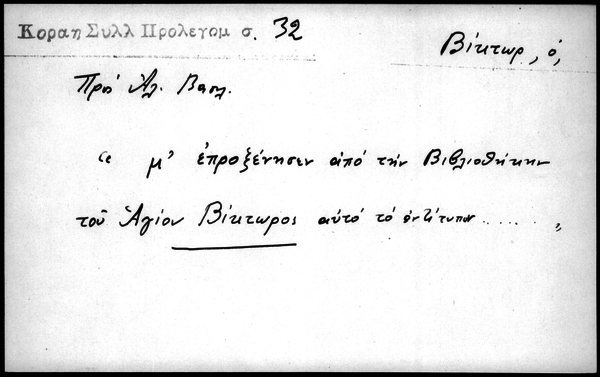 Κοραη Συλλ Προλεγομ σ. 32
Βίκτωρ, ὁ,
Πρὸ Ἀλ. Βασ.
“ μ' ἐπροξένησεν ἀπὸ τὴν Βιβλιοθήκην
τοῦ Ἁγίου Βίκτωρος αὐτὸ τὸ ἀντίτυπον ..... „